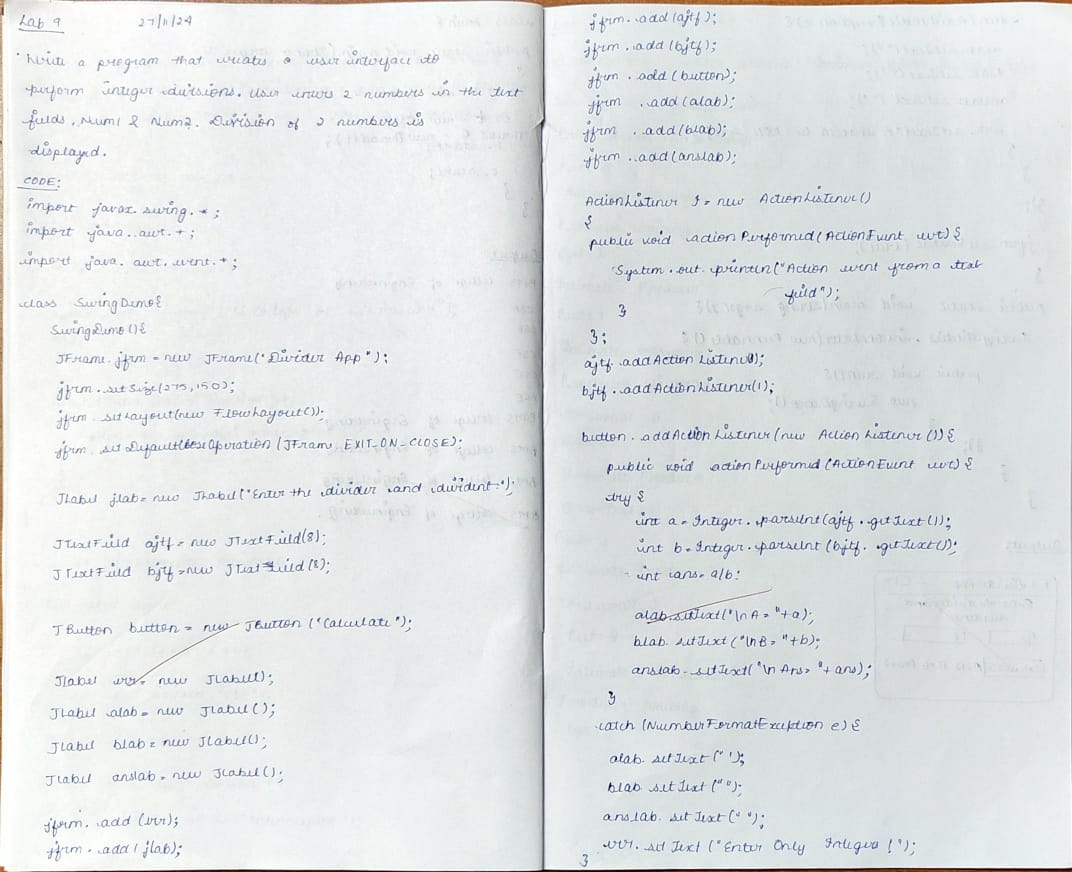 Lab 9 27/11/24
Write a program that creates a user interface to
perform integer divisions. User enters 2 numbers in the text
fields, Num1 & Num2. Division of 2 numbers is
displayed.
CODE:
import javax. swing. *;
import java. .awt. *;
import java. awt. event. *;
class SwingDemo{
SwingDemo (){
JFrame. jfrm = new JFrame("Divider App");
jfrm. setSize(275,150);
jfrm. setLayout(new FlowLayout());
jfrm. setDefaultCloseOperation (JFrame. EXIT_ON_CLOSE);
JLabel jlab = new JLabel("Enter the divider and divident:");
JTextField ajtf = new JTextField(8);
JTextField bjtf = new JTextField(8);
JButton button = new JButton ("Calculate");
JLabel err = new JLabel();
JLabel alab = new JLabel();
JLabel blab = new JLabel();
JLabel anslab = new JLabel();
jfrm. add (err);
jfrm. add (jlab);
jfrm. add (ajtf);
jfrm. add (bjtf);
jfrm . add (button);
jfrm . add (alab);
jfrm . add (blab);
jfrm . add (anslab);
ActionListener I = new ActionListener()
{
public void action Performed (ActionEvent evt) {
System. out. println("Action event from a text
field");
}
};
ajtf. addAction Listener(l);
bjtf. addActionListener(l);
button. addAction Listener (new Action Listener ()) {
public void action Performed (ActionEvent evt) {
try {
int a = Integer. parseInt (ajtf. getText());
int b = Integer. parseInt (bjtf. getText());
int ans = a/b;
alab. setText("\n A = "+a);
blab. setText ("\n B = "+b);
anslab. setText( "\n Ans= "+ ans);
}
catch (NumberFormatException e) {
alab. setText (" ');
blab. setText (" ");
anslab. setText (" ");
err. setText ("Enter Only Integers !");
}